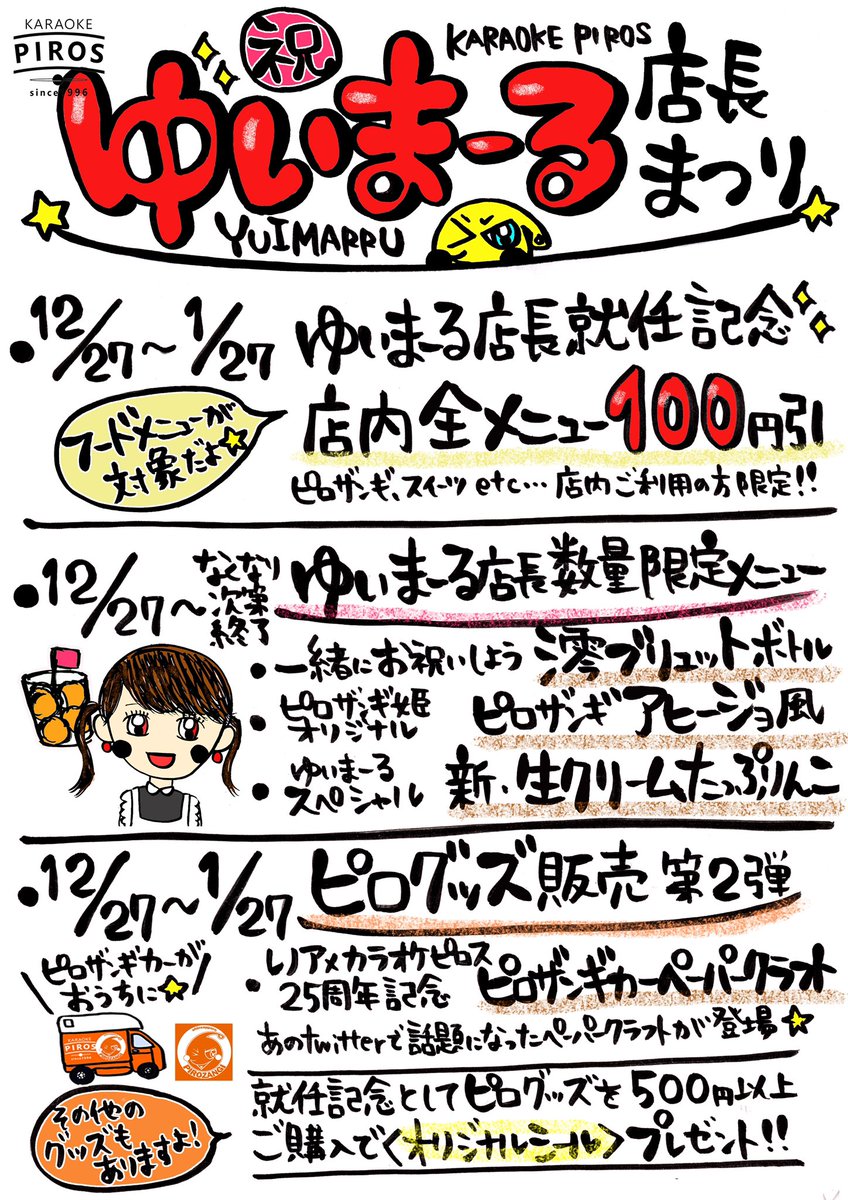 KARAOKE
PIROS
since 1996
祝
KARAOKE PIROS
ゆいまーる
店長
まつり
YUIMARRU
・12/27〜1/27
ゆいまーる店長就任記念
店内全メニュー100円引
フードメニューが
対象だよ☆
ピロザンギ、スイーツ etc… 店内ご利用の方限定!!
・12/27〜
なくなり
次第
終了
ゆいまーる店長数量限定メニュー
・一緒にお祝いしよう 澪ブリュットボトル
・ピロザンギ姫
オリジナル
ピロザンギアヒージョ風
・ゆいまーる
スペシャル
新・生クリームたっぷりんこ
・12/27〜1/27
ピログッズ販売 第2弾
ピロザンギカーが
おうちに☆
カラオケピロス
25周年記念
ピロザンギカーペーパークラフト
あのtwitterで話題になったペーパークラフトが登場☆
KARAOKE
PIROS
PIROZANGI
就任記念としてピログッズを500円以上
ご購入で〈オリジナルシール〉プレゼント!!
その他の
グッズも
ありますよ!